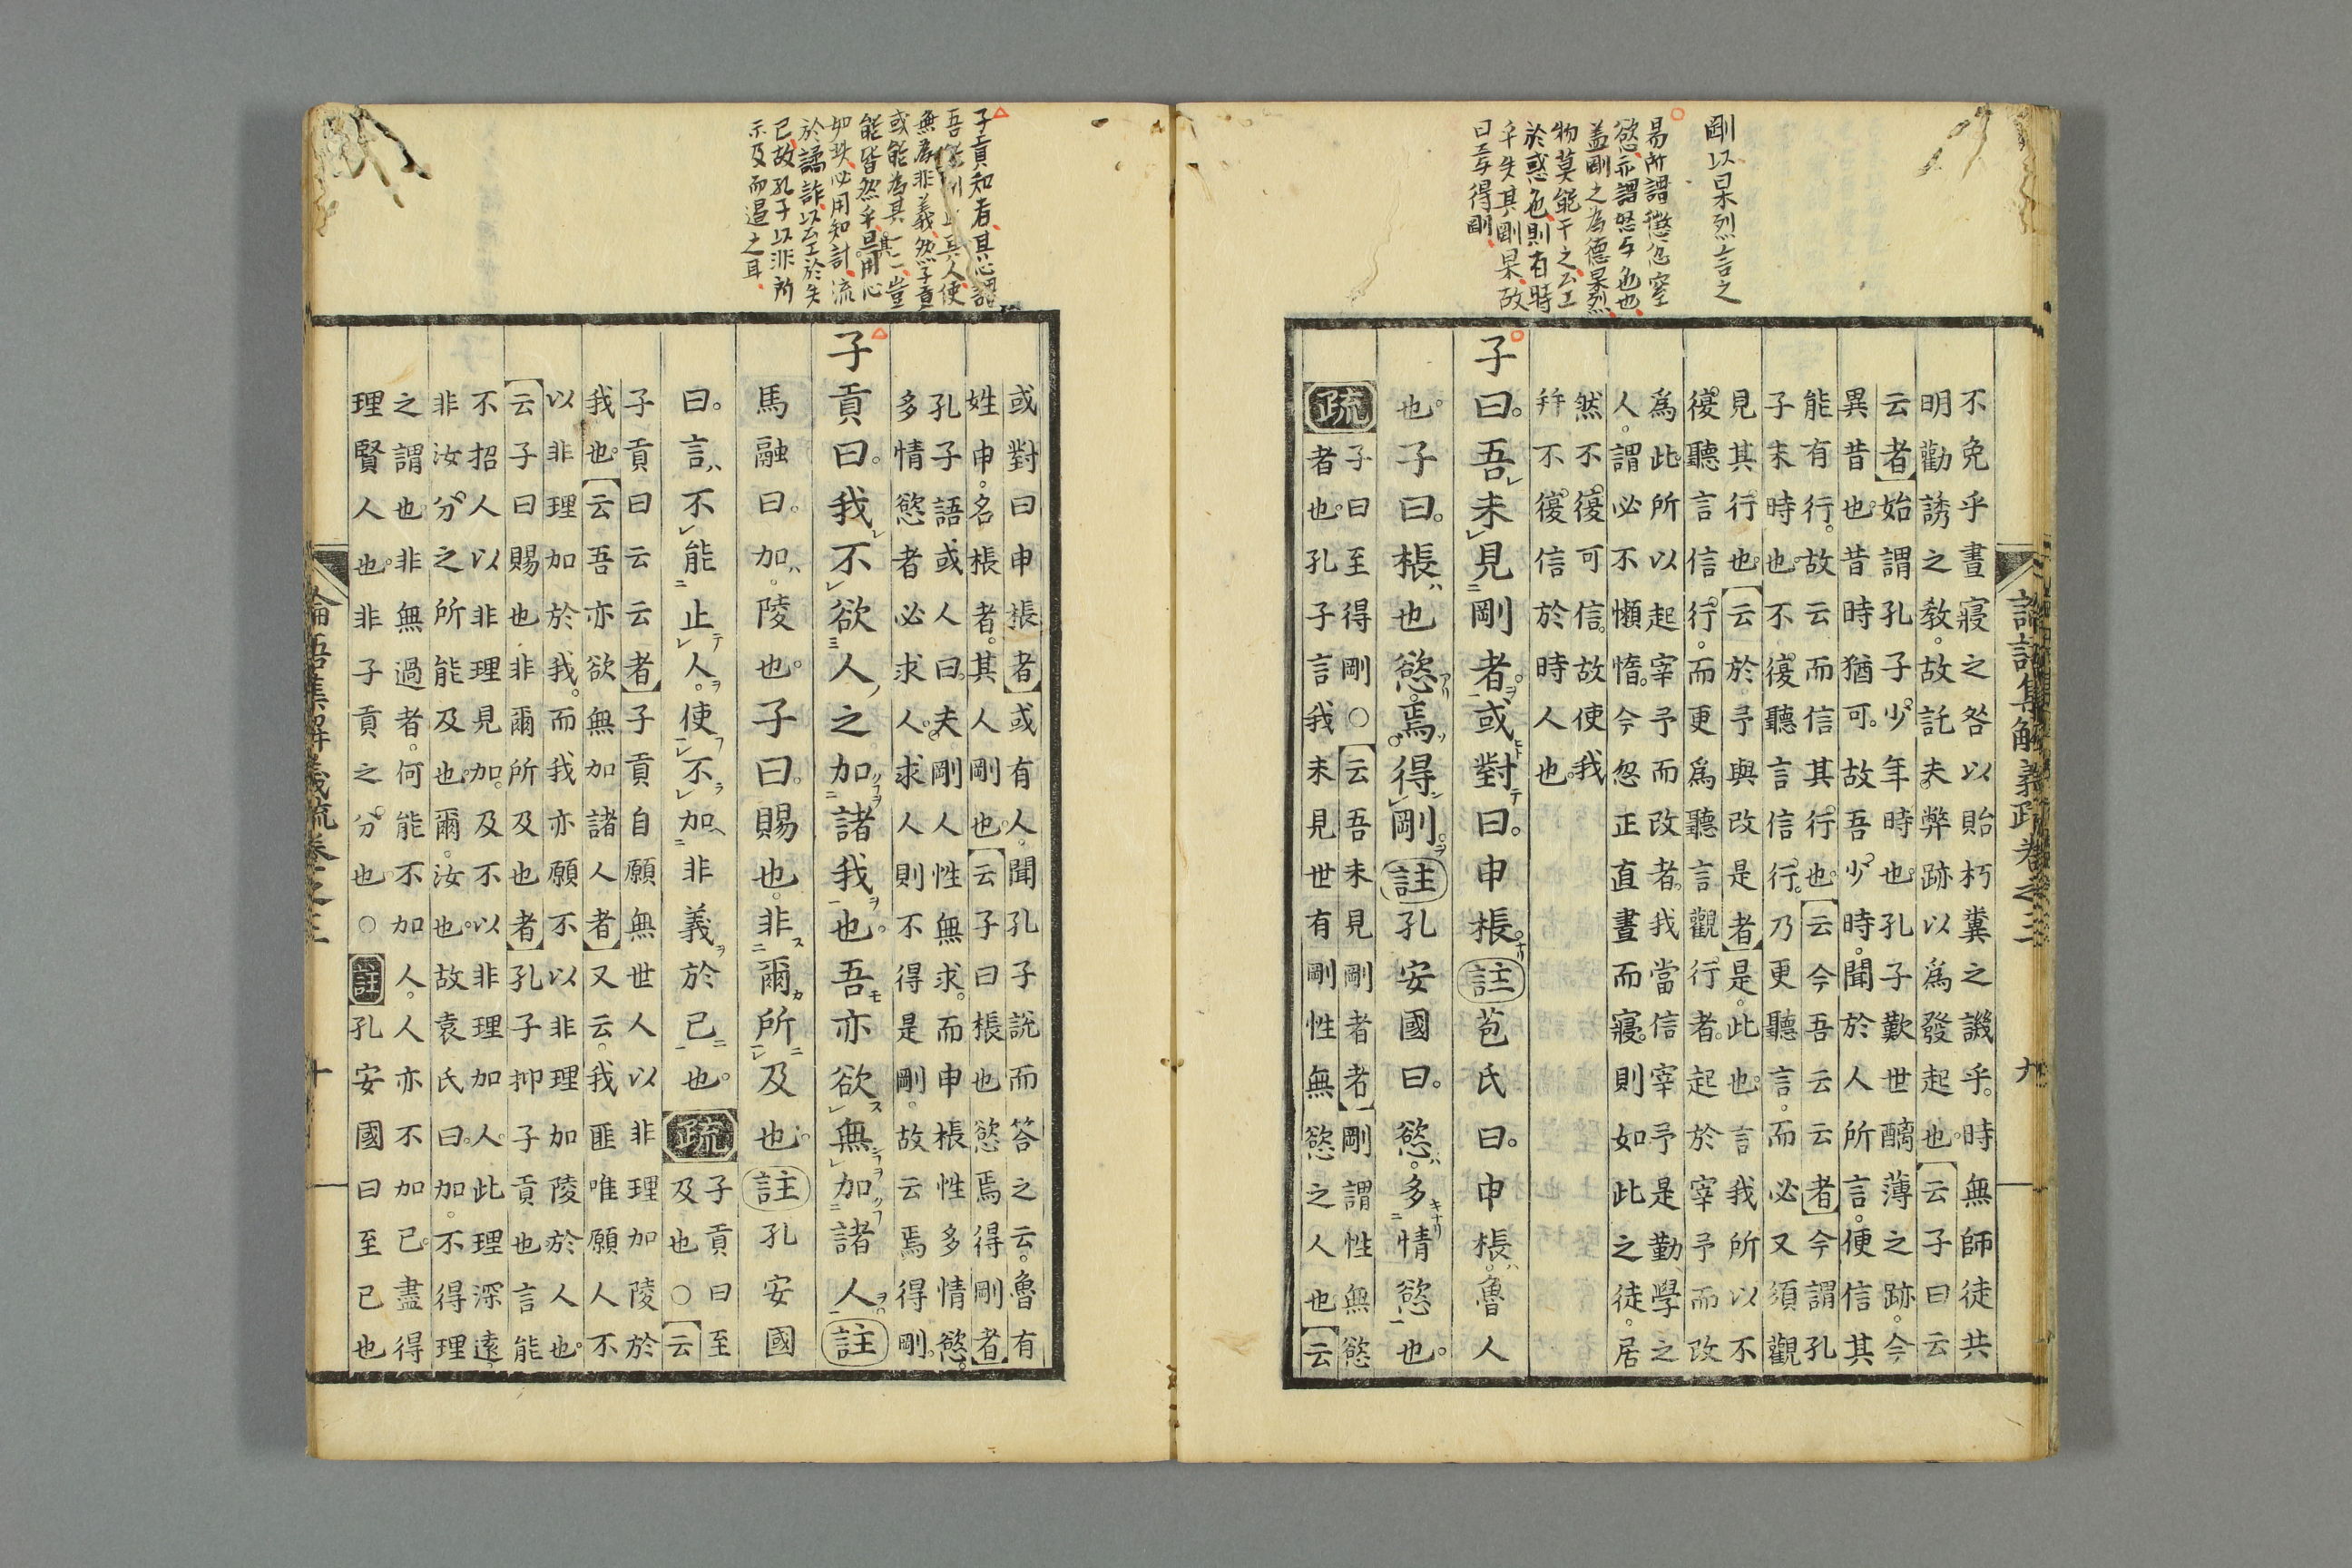 剛以杲烈言之
易所謂懲忿窒
慾亦謂怒与忿也
盖剛之為德杲烈
物莫能干之公工
於惑也則有時
乎失其剛杲故
曰焉得剛
論語集解義疏卷之三
九
不免乎晝寢之咎以貽朽糞之譏乎時無師徒共
明勸誘之敎故託夫弊跡以爲發起也云子曰云
云者始謂孔子少年時也孔子歎世醨薄之跡今
異昔也昔時猶可故吾少時聞於人所言便信其
能有行故云而信其行也云今吾云云者今謂孔
子末時也不復聽言信行乃更聽言而必又須觀
見其行也云於予與改是者是此也言我所以不
復聽言信行而更爲聽言觀行者起於宰予而改
爲此所以起宰予而改者我當信宰予是勤學之
人謂必不懶惰今忽正直晝而寢則如此之徒居
然不復可信故使我
幷不復信於時人也
子曰吾未見剛者或對曰申棖註苞氏曰申棖魯人
也子曰棖也慾焉得剛註孔安國曰慾多情慾也
疏
子曰至得剛○云吾未見剛者者剛謂性無慾
者也孔子言我未見世有剛性無慾之人也云
子貢知者其心謂
無為非義然子貢
或能為其一二豈
能皆然乎且用心
如此必用知計流
於譎詐以公工於失
已故孔子以非所
示及而遏之耳
或對曰申棖者或有人聞孔子說而答之云魯有
姓申名棖者其人剛也云子曰棖也慾焉得剛者
孔子語或人曰夫剛人性無求而申棖性多情慾
多情慾者必求人求人則不得是剛故云焉得剛
子貢曰我不欲人之加諸我也吾亦欲無加諸人註
馬融曰加陵也子曰賜也非爾所及也註孔安國
曰言不能止人使不加非義於已也疏
子貢曰至
及也○云
子貢曰云云者子貢自願無世人以非理加陵於
我也云吾亦欲無加諸人者又云我匪唯願人不
以非理加於我而我亦願不以非理加陵於人也
云子曰賜也非爾所及也者孔子抑子貢也言能
不招人以非理見加及不以非理加人此理深遠
非汝分之所能及也爾汝也故袁氏曰加不得理
之謂也非無過者何能不加人人亦不加已盡得
理賢人也非子貢之分也○註孔安國曰至已也
論語集解義疏卷之三
十